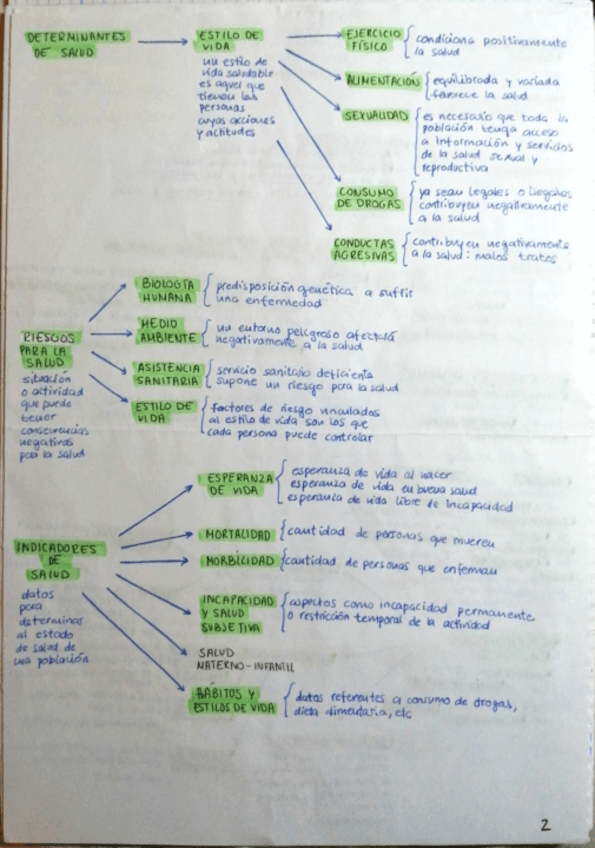 DETERMINANTES
DE SALUD
ESTILO DE
VIDA
un estilo de
vida saludable
es aquel que
tienen las
personas
cuyas acciones
y actitudes
EJERCICIO
FÍSICO
condiciona positivamente
la salud
ALIMENTACIÓN
equilibrada y variada
favorece la salud
SEXUALIDAD
es necesario que toda la
población tenga acceso
a información y servicios
de la salud sexual y
reproductiva
CONSUMO
DE DROGAS
ya sean legales o ilegales
contribuyen negativamente
a la salud
CONDUCTAS
AGRESIVAS
contribuyen negativamente
a la salud: malos tratos
RIESGOS
PARA LA
SALUD
situación
o actividad
que puede
tener
consecuencias
negativas
para la salud
BIOLOGÍA
HUMANA
predisposición genética a sufrir
una enfermedad
MEDIO
AMBIENTE
un entorno peligroso afectará
negativamente a la salud
ASISTENCIA
SANITARIA
servicio sanitario deficiente
supone un riesgo para la salud
ESTILO DE
VIDA
factores de riesgo vinculados
al estilo de vida son los que
cada persona puede controlar
INDICADORES
DE
SALUD
datos
para
determinar
el estado
de salud de
una población
ESPERANZA
DE VIDA
esperanza de vida al nacer
esperanza de vida en buena salud
esperanza de vida libre de incapacidad
MORTALIDAD
cantidad de personas que mueren
MORBILIDAD
cantidad de personas que enferman
INCAPACIDAD
Y SALUD
SUBJETIVA
aspectos como incapacidad permanente
o restricción temporal de la actividad
SALUD
MATERNO-INFANTIL
HÁBITOS Y
ESTILOS DE VIDA
datos referentes a consumo de drogas,
dieta alimentaria, etc
2